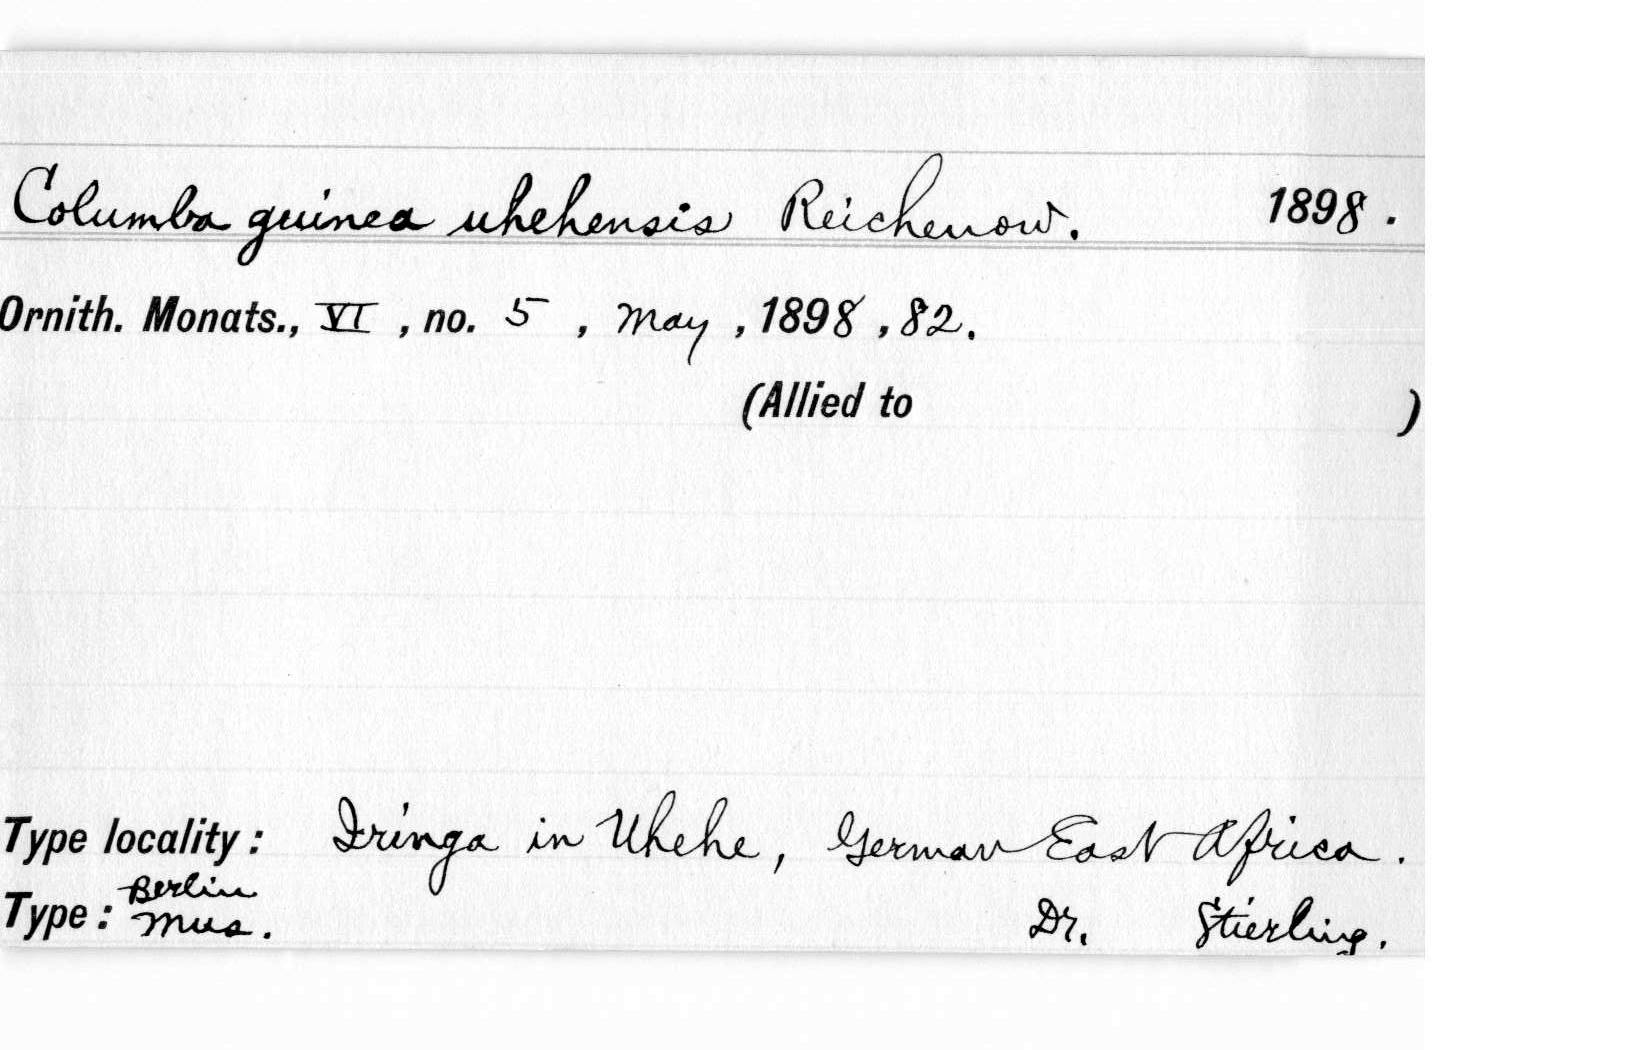 Columba guinea uhehensis Reichenow. 1898.
Ornith. Monats., VI, no. 5, May, 1898, 82.
(Allied to )
Type locality: Iringa in Uhehe, German East Africa.
Type: Berlin Mus. Dr. Stierling.